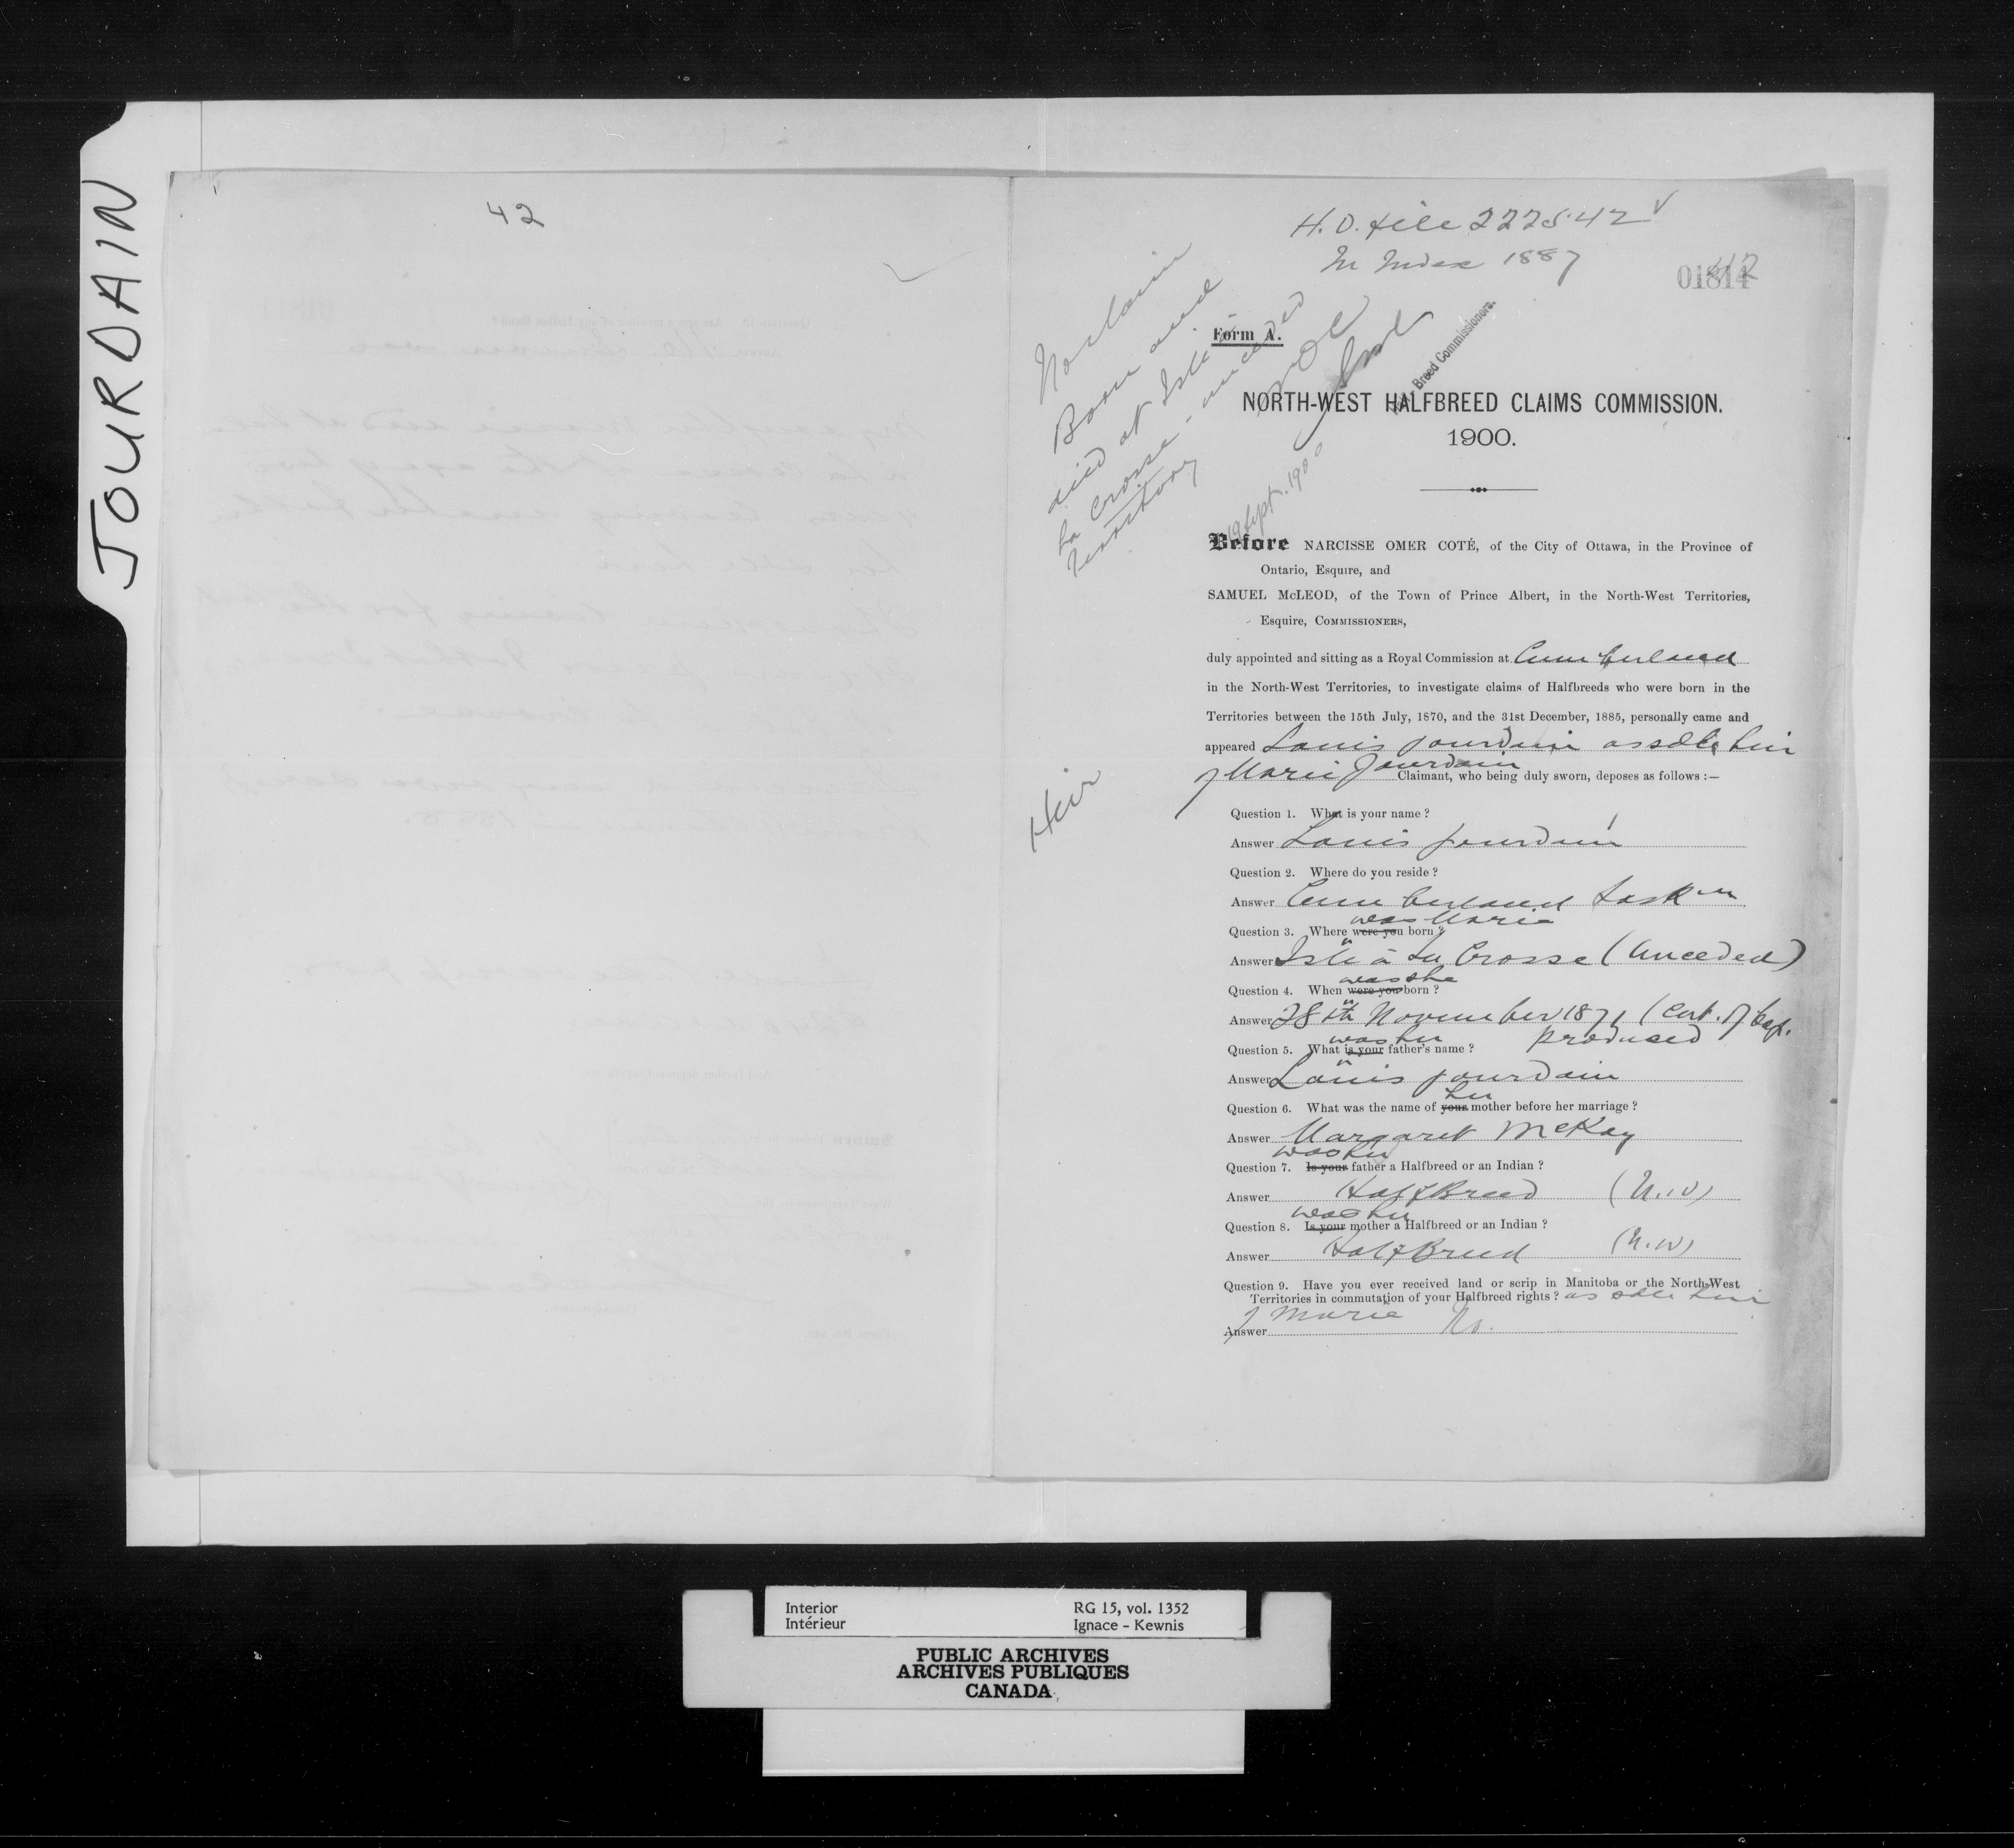 JOURDAIN
42
H.D. file 222542
In Index 1887
No claim
Born and
died at Isle à
La Crosse - unceded
territory
NOC
Half Breed Commissioners.
19 Sept. 1900
Heir
Form A.
NORTH-WEST HALFBREED CLAIMS COMMISSION.
1900.
Before NARCISSE OMER COTÉ, of the City of Ottawa, in the Province of
Ontario, Esquire, and
SAMUEL McLEOD, of the Town of Prince Albert, in the North-West Territories,
Esquire, COMMISSIONERS,
duly appointed and sitting as a Royal Commission at Cumberland
in the North-West Territories, to investigate claims of Halfbreeds who were born in the
Territories between the 15th July, 1870, and the 31st December, 1885, personally came and
appeared Louis Jourdain as sole heir
of Marie Jourdain Claimant, who being duly sworn, deposes as follows :—
Question 1. What is your name ?
Answer Louis Jourdain
Question 2. Where do you reside ?
Answer Cumberland Sask
was Marie
Question 3. Where were you born ?
Answer Isle à la Crosse (Unceded)
was she
Question 4. When were you born ?
Answer 28th November 1871 (Cert. of bap.
produced
was her
Question 5. What is your father's name ?
Answer Louis Jourdain
her
Question 6. What was the name of your mother before her marriage ?
Answer Margaret McKay
was her
Question 7. Is your father a Halfbreed or an Indian ?
Answer Half Breed (N.W)
was her
Question 8. Is your mother a Halfbreed or an Indian ?
Answer Half Breed (N.W)
Question 9. Have you ever received land or scrip in Manitoba or the North-West
Territories in commutation of your Halfbreed rights ? as sole heir
of Marie
Answer No.
Interior
Intérieur
RG 15, vol. 1352
Ignace – Kewnis
PUBLIC ARCHIVES
ARCHIVES PUBLIQUES
CANADA